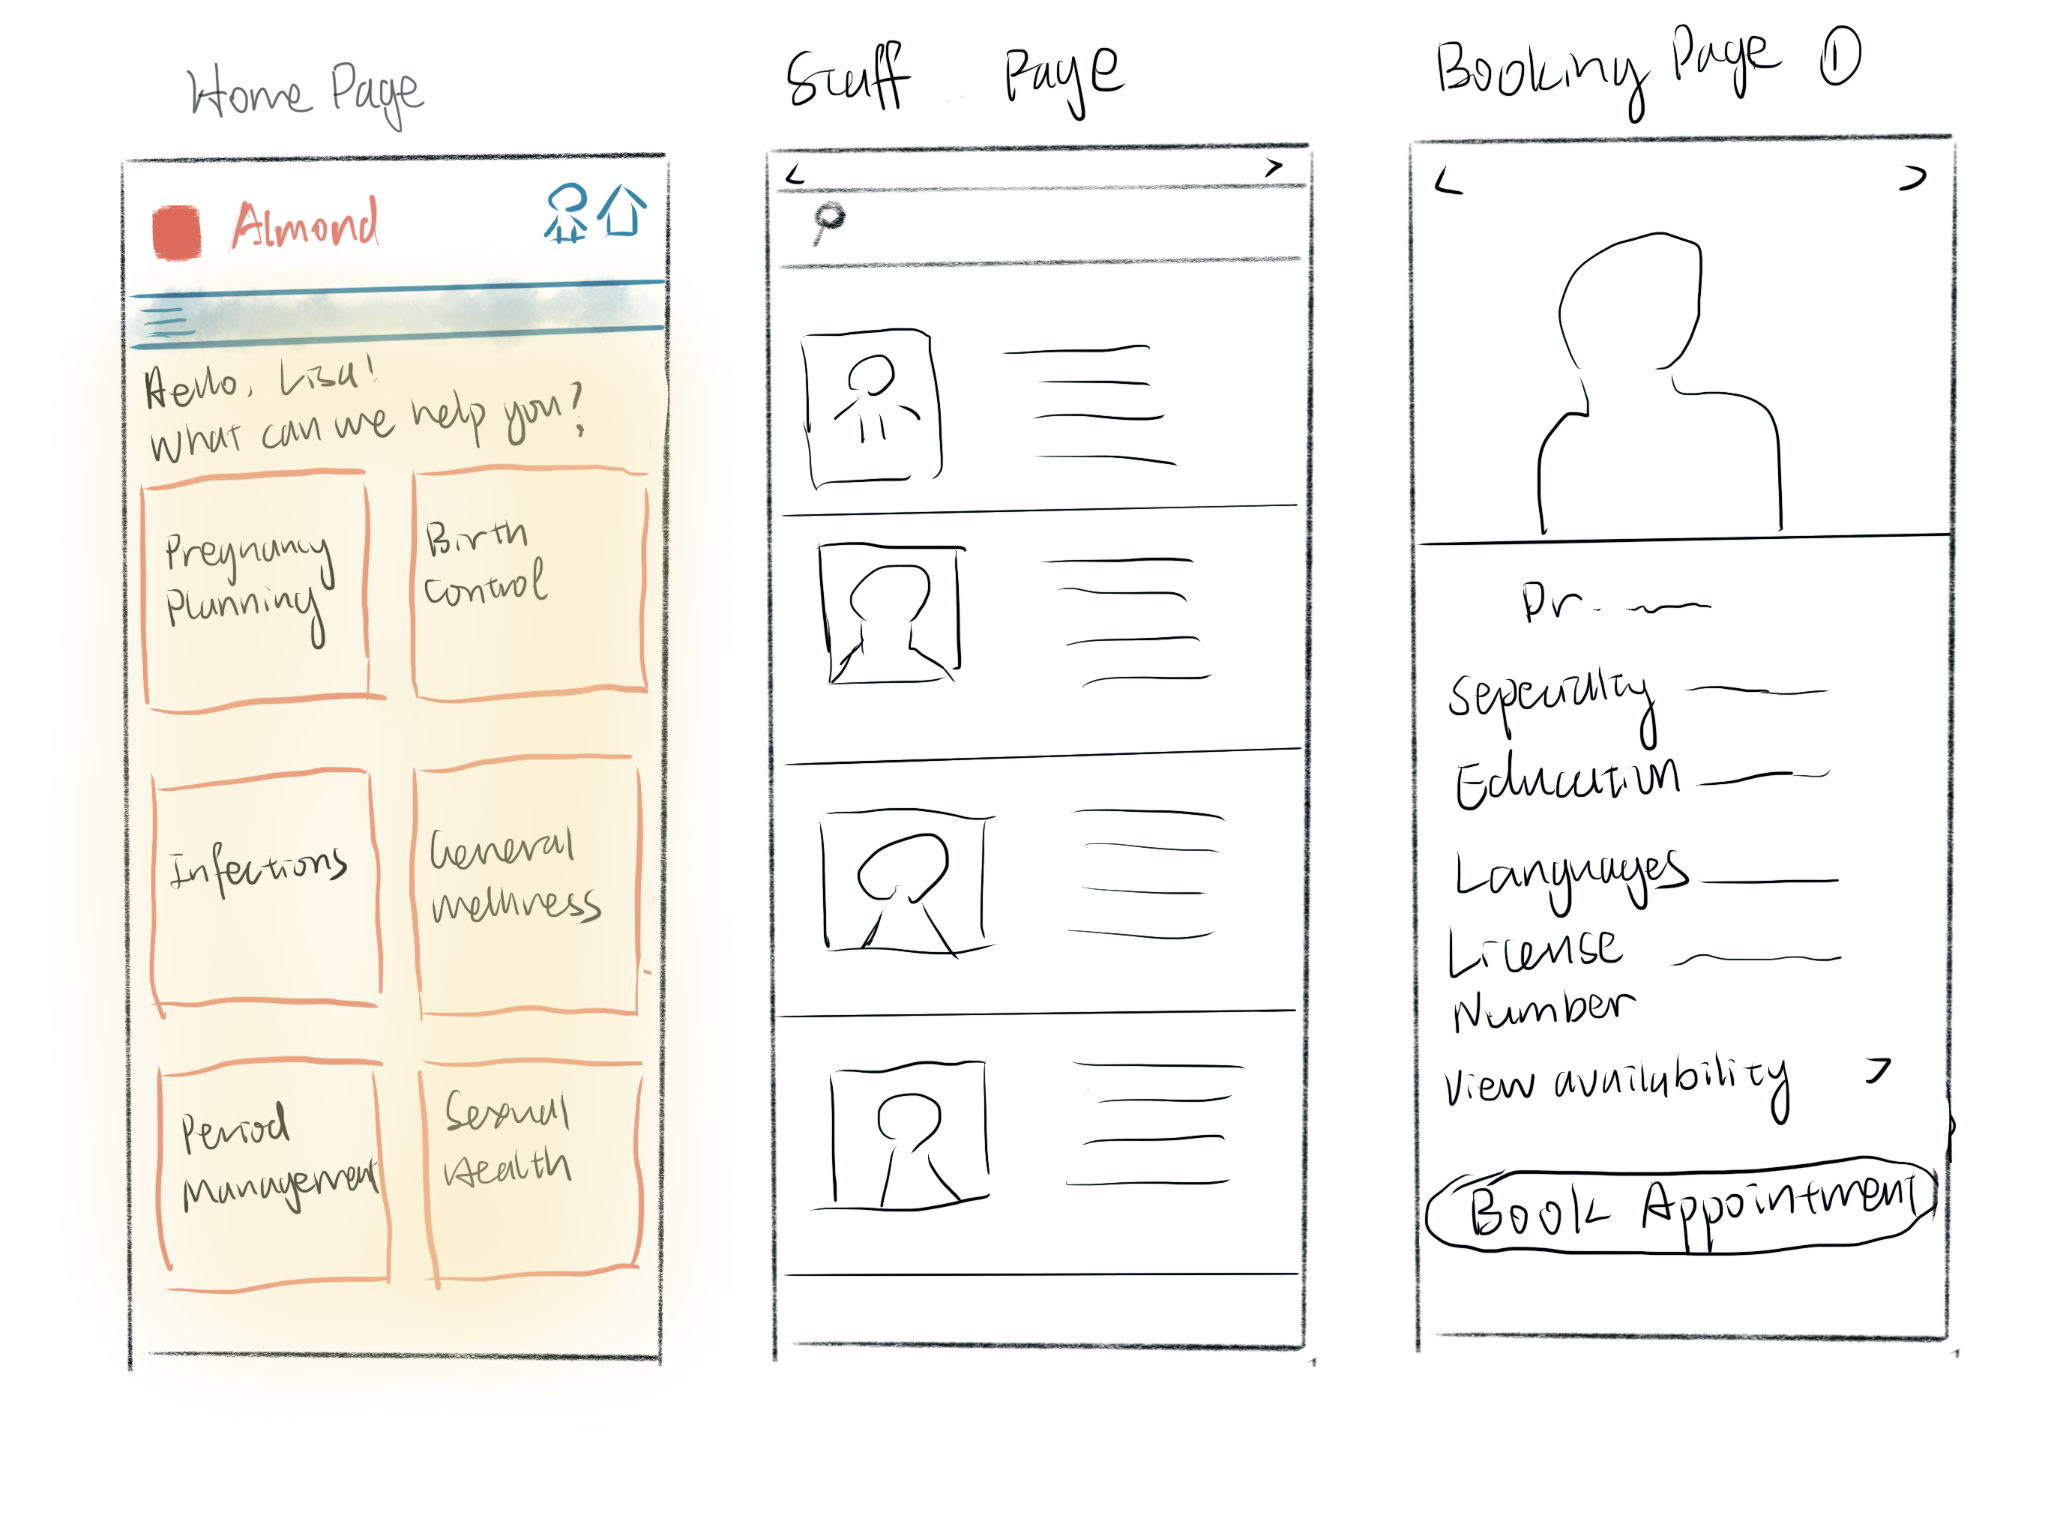 Home Page
Almond
Hello, Lisa!
What can we help you?
Pregnancy
Planning
Birth
Control
Infections
General
Wellness
Period
Management
Sexual
Health
Stuff Page
Booking Page ①
Dr.
Sepeciality
Education
Languages
License
Number
View availability >
Book Appointment